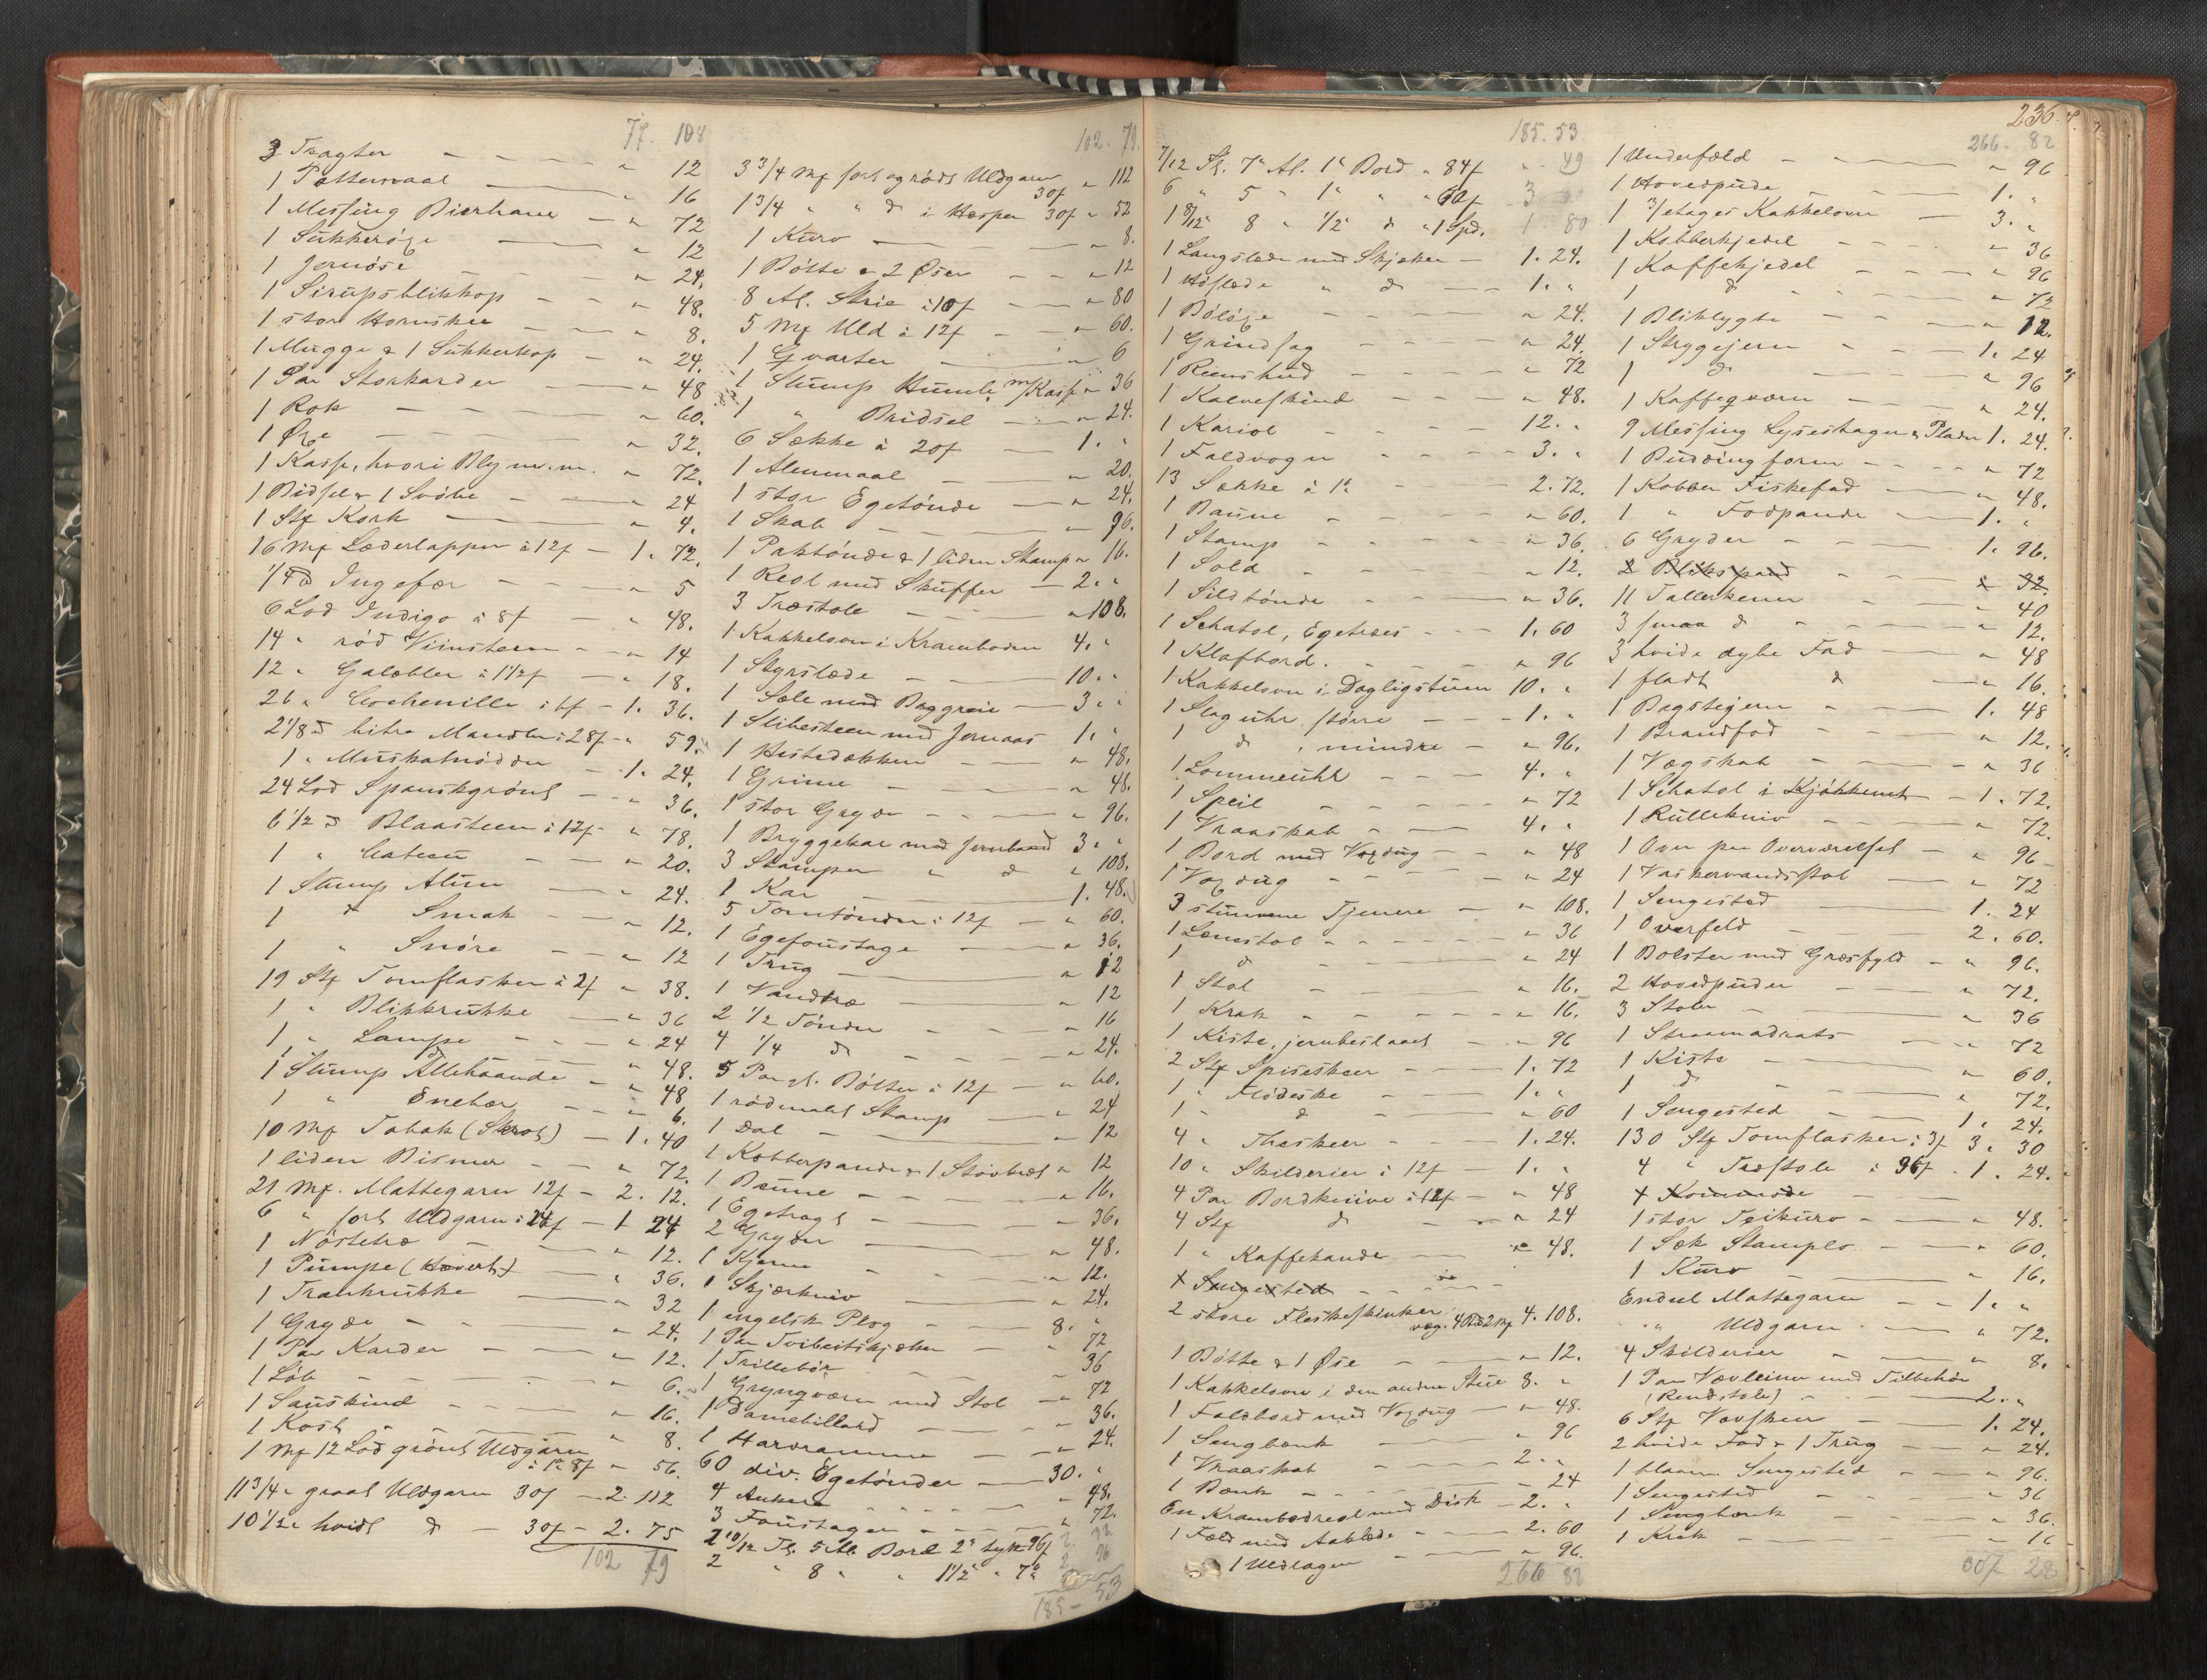 77. 108
3 Tragter - - - " 12
1 Pottemaal — " 16
1 Messing Bierhane — " 72
1 Sukkerøxe — " 12
1 Jernøse - - - " 24.
1 Sirupsblikkop - - " 48.
1 stor Hornskee - - - 8.
1 Mugge & 1 Sukkerkop - " 24.
1 Par Storkarder — " 48
1 Rok — " 60.
1 Øxe — " 32.
1 Kasse, hvori Bly m. m. " 72.
1 Bidsel & 1 Svøbe - - " 24
1 Stk Kork — " 4.
16 Mk Læderlapper à 12f - 1. 72.
1/4 ℔ Ingefær - - - " 5
6 Lod Indigo à 8f — " 48.
14 " rød Viinsteen - - " 14
12 " Galæbler à 1 1/2f — " 18.
26 " Cochenille à 6f - 1. 36.
2 1/8 ℔ bitre Mandler à 28f - " 59.
1 " Muskatnødder - 1. 24.
24 Lod Spanskgrønt - - " 36.
6 1/2 ℔ Blaasteen à 12f - " 78.
1 " Catecu - - - " 20.
1 Stump Alun — " 24.
1 d Smak - - - " 12.
1 " Snøre - - - " 12
19 Stk Tomflasker à 2f - " 38.
1 " Blikkrukke — " 36
1 " Lampe - - - " 24
1 " d - - - " 48.
1 Stump Allehaande - - " 48
1 " Enebær - - - " 6.
10 Mk Tobak (Skrot) - 1. 40
1 liden Bismer - - - " 72.
21 Mk. Mattegarn 12f - 2. 12.
6 " sort Uldgarn à 24f - 1 24
1 Nøstetræ - - - " 12.
1 Pumpe (Hævert) - - " 36.
1 Trankrukke — " 32
1 Gryde - - - " 24.
1 Par Karder - - - " 12.
1 Løb - - - " 6.
1 Sauskind - - - " 16.
1 Kost - - - " 8.
1 Mk 12 Lod grønt Uldgarn
à 1 2 8f " 56.
11 3/4 " graat Uldgarn 30f - 2. 112.
10 1/2 " hvidt d - 30f - 2. 75
102 79
102. 79.
3 3/4 Mk sort og rødt Uldgarn
30f " 112
1 3/4 " " d i Hesper 30f " 52
1 Kurv — " 8.
1 Bøtte & 2 Øser - - " 12
8 Al. Strie à 10f — " 80
5 Mk Uld à 12f - - " 60.
1 Qvarter - - - " 6
1 Stump Humle m/Kasse " 36
1 " Bridsel - - " 24.
6 Sække à 20f - 1. "
1 Alenmaal - - " 20.
1 stor Egetønde — " 24.
1 Skab — " 96.
1 Paktønde & 1 liden Stamp " 16.
1 Reol med Skuffer — 2. "
3 Træstole — " 108.
1 Kakkelovn i Kramboden 4. "
1 Styrslæde — 10. "
1 Sæle med Baggreie — 3. "
1 Slibesteen med Jernaas 1. "
1 Hestedækken — " 48.
1 Grime — " 48.
1 stor Gryde - - " 96.
1 Bryggekar med Jernbaand 3. "
3 Stamper " d " 108.
1 Kar — 1. 48.
5 Tomtønder à 12f - " 60.
1 Egefoustage — " 36.
1 Trug — " 12
1 Vandtræ — " 12
2 1/2 Tønder - - - " 16
4 1/4 d - - - " 24.
5 Par gl. Bøtter à 12f - " 60.
1 rødmalet Stamp — " 24
1 Dal — " 12
1 Kobberpande & 1 Støvbræt " 12
1 Bume - - - " 16.
1 Egetragt — " 36.
2 Gryder — " 48.
1 Kjerne - - - " 12.
1 Skjærkniv — " 24.
1 engelsk Plog - - 8. "
1 Par Tvibeitskjæker - " 72
1 Trillebør - - 36
1 Grynqværn med Stol - " 72
1 Damebillard - - " 36.
1 Harvramme - - " 24.
60 div. Egetønder — 30. "
4 Ankere - - - " 48.
3 Foustager - - - " 72.
2 10/12 Tl. 5 Al. Bord 2" tyk 96f
2 " 8 " " 1 1/2" " 7 2 96
185 - 53
185. 53
7/12 Tl. 7" Al. 1" Bord " 84f " 49
6 " 5 " 1" " " 60f 3
1 8/12 8 " 1/2" d " 1 Spd. 1 80
1 Langslæde med Skjæker — 1. 24.
1 Høslæde " d - 1. "
1 Bøløxe - - - " 24.
1 Grindsag - - - " 24.
1 Reenshud - - - " 72
1 Kalveskind - - - " 48.
1 Kariol - - - 12. "
1 Faldvogn - - - 3. "
13 Sække à 1 2 - - 2. 72.
1 Baune - - - " 60.
1 Stamp - - - " 36.
1 Sold - - - " 12.
1 Sildtønde - - - " 36.
1 Schatol, Egetræes - - - 1. 60
1 Klafbord. - - - " 96
1 Kakkelovn i Dagligstuen 10. "
1 Slaguhr, større - - - 1. "
1 d " mindre - " 96.
1 Lommeuhr - - - 4. "
1 Speil - - - " 72
1 Vraaskab - - 4. "
1 Bord med Voxdug - - " 48
1 Voxdug - - - " 24
3 stumme Tjenere - " 108.
1 Lænestol - - - " 36
1 d - - - " 24
1 Stol - - - " 16.
1 Krak - - - " 16.
1 Kiste, jernbeslaaet - " 96
2 Stk Spiseskeer - - 1. 72
1 " Flødeske - - 1. "
1 " d - - " 60
4 " Theskeer - - - 1. 24.
10 " Skilderier à 12f - 1. "
4 Par Bordknive à 12f - " 48
4 Stk d - - " 24
1 " Kaffekande — " 48.
1 Sengested - - -
2 store Fleskeskinker
væg. 4 ℔ 2 Mk 4. 108.
1 Bøtte & 1 Øse - - - " 12.
1 Kakkelovn i den anden Stue 8. "
1 Faldbord med Voxdug - " 48.
1 Sengbænk — " 96
1 Vraaskab — 2. "
1 Bænk - - - 24
En Krambodreol med Disk - 2. "
1 Fæld med Aaklæde - - 2. 60
1 Uldlagen - - - " 96.
266 82
236.
266 - 82
1 Underfæld - - " 96
1 Hovedpude - - - 1. "
1 3/etages Kakkelovn — 3. "
1 Kobberkjedel - - - " 36
1 Kaffekjedel - - - " 96
1 d - - - " 72
1 Bliklygte - - " 12.
1 Strygejern - - - 1. 24
1 d - - - " 96
1 Kaffeqværn - - - " 24.
9 Messing Lysestager & Plader 1. 24.
1 Buddingform - - - " 72
1 Kobber Fiskefad — " 48.
1 " Fodpande - 1. "
6 Gryder - - - 1. 96.
2 Blikspand - - " 32.
11 Tallerkener — " 40
3 smaa d - - - " 12.
3 hvide dybe Fad — " 48
1 fladt d — " 16.
1 Bagstejern - - 1. 48
1 Brandfod - - - " 12.
1 Vægskab - - " 36
1 Schatol i Kjøkkenet - 1. 72.
1 Rullekniv - - - " 72.
1 Ovn paa Overværelset - " 96
1 Vaskevandsstol - - " 72
1 Sengested — 1. 24
1 Overfeld - - - 2. 60.
1 Bolster med Græsfyld - " 96.
2 Hovedpuder - - - " 72.
3 Stole — " 36
1 Straamadrats — " 72
1 Kiste — " 60.
1 d - - - " 72.
1 Sengested - - - 1. 24.
130 Stk Tomflasker à 3f 3. 30
4 " Træstole à 36f - 1. 24.
1 Kommode —
1 stor Teikurv - - " 48.
1 Sæk Stamplo - - " 60.
1 Kurv — " 16.
Endeel Mattegarn - - 1. "
" Uldgarn - - " 72.
4 Skilderier - - " 8.
1 Par Vævlener med Tilbehør
(Rendstole) - - 2. "
6 Stk Vævskeer — 1. 24.
2 hvide Fad & 1 Trug — " 24.
1 blaam. Sengested - - " 96.
1 Sengested - - - " 36
1 Sengbænk — " 36.
1 Krak — " 16
307 28